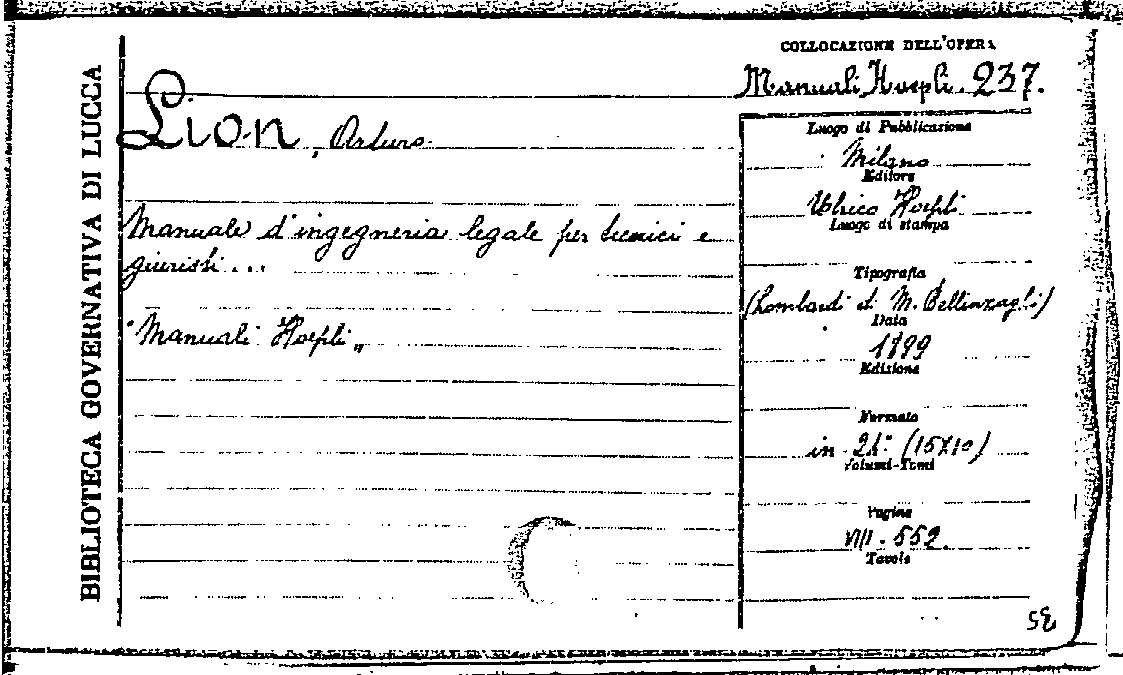 BIBLIOTECA GOVERNATIVA DI LUCCA
COLLOCAZIONE DELL'OPERA
Manuali Hoepli. 237.
Lion, Arturo.
Manuale d'ingegneria legale per tecnici e
giuristi...
"Manuali Hoepli„
Luogo di Pubblicazione
Milano
Editore
Ulrico Hoepli
Luogo di stampa
Tipografia
(Lombardi di M. Bellinzagli)
Data
1899
Edizione
Formato
in 24° (15X10)
Volumi-Tomi
Pagine
VIII - 552.
Tavole